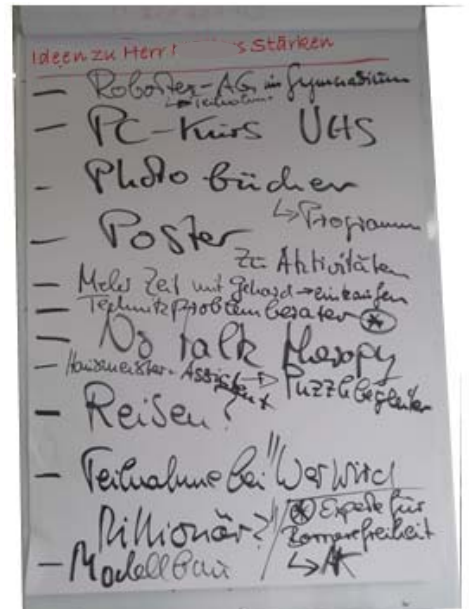 Ideen zu Herr s Stärken
– Roboter-AG im Gymnasium
↳ Teilnahme
– PC-Kurs VHS
– Photobücher
↳ Programm
– Poster
zu Aktivitäten
– Mehr Zeit mit Gehard → einkaufen
– Technikproblemberater *
– No talk therapy
– Hausmeister-Assistent → Puzzlebegleiter
– Reisen?
– Teilnahme bei "Wer wird
Millionär?"
* Experte für
Barrierefreiheit
↳ AK
– Modellbau